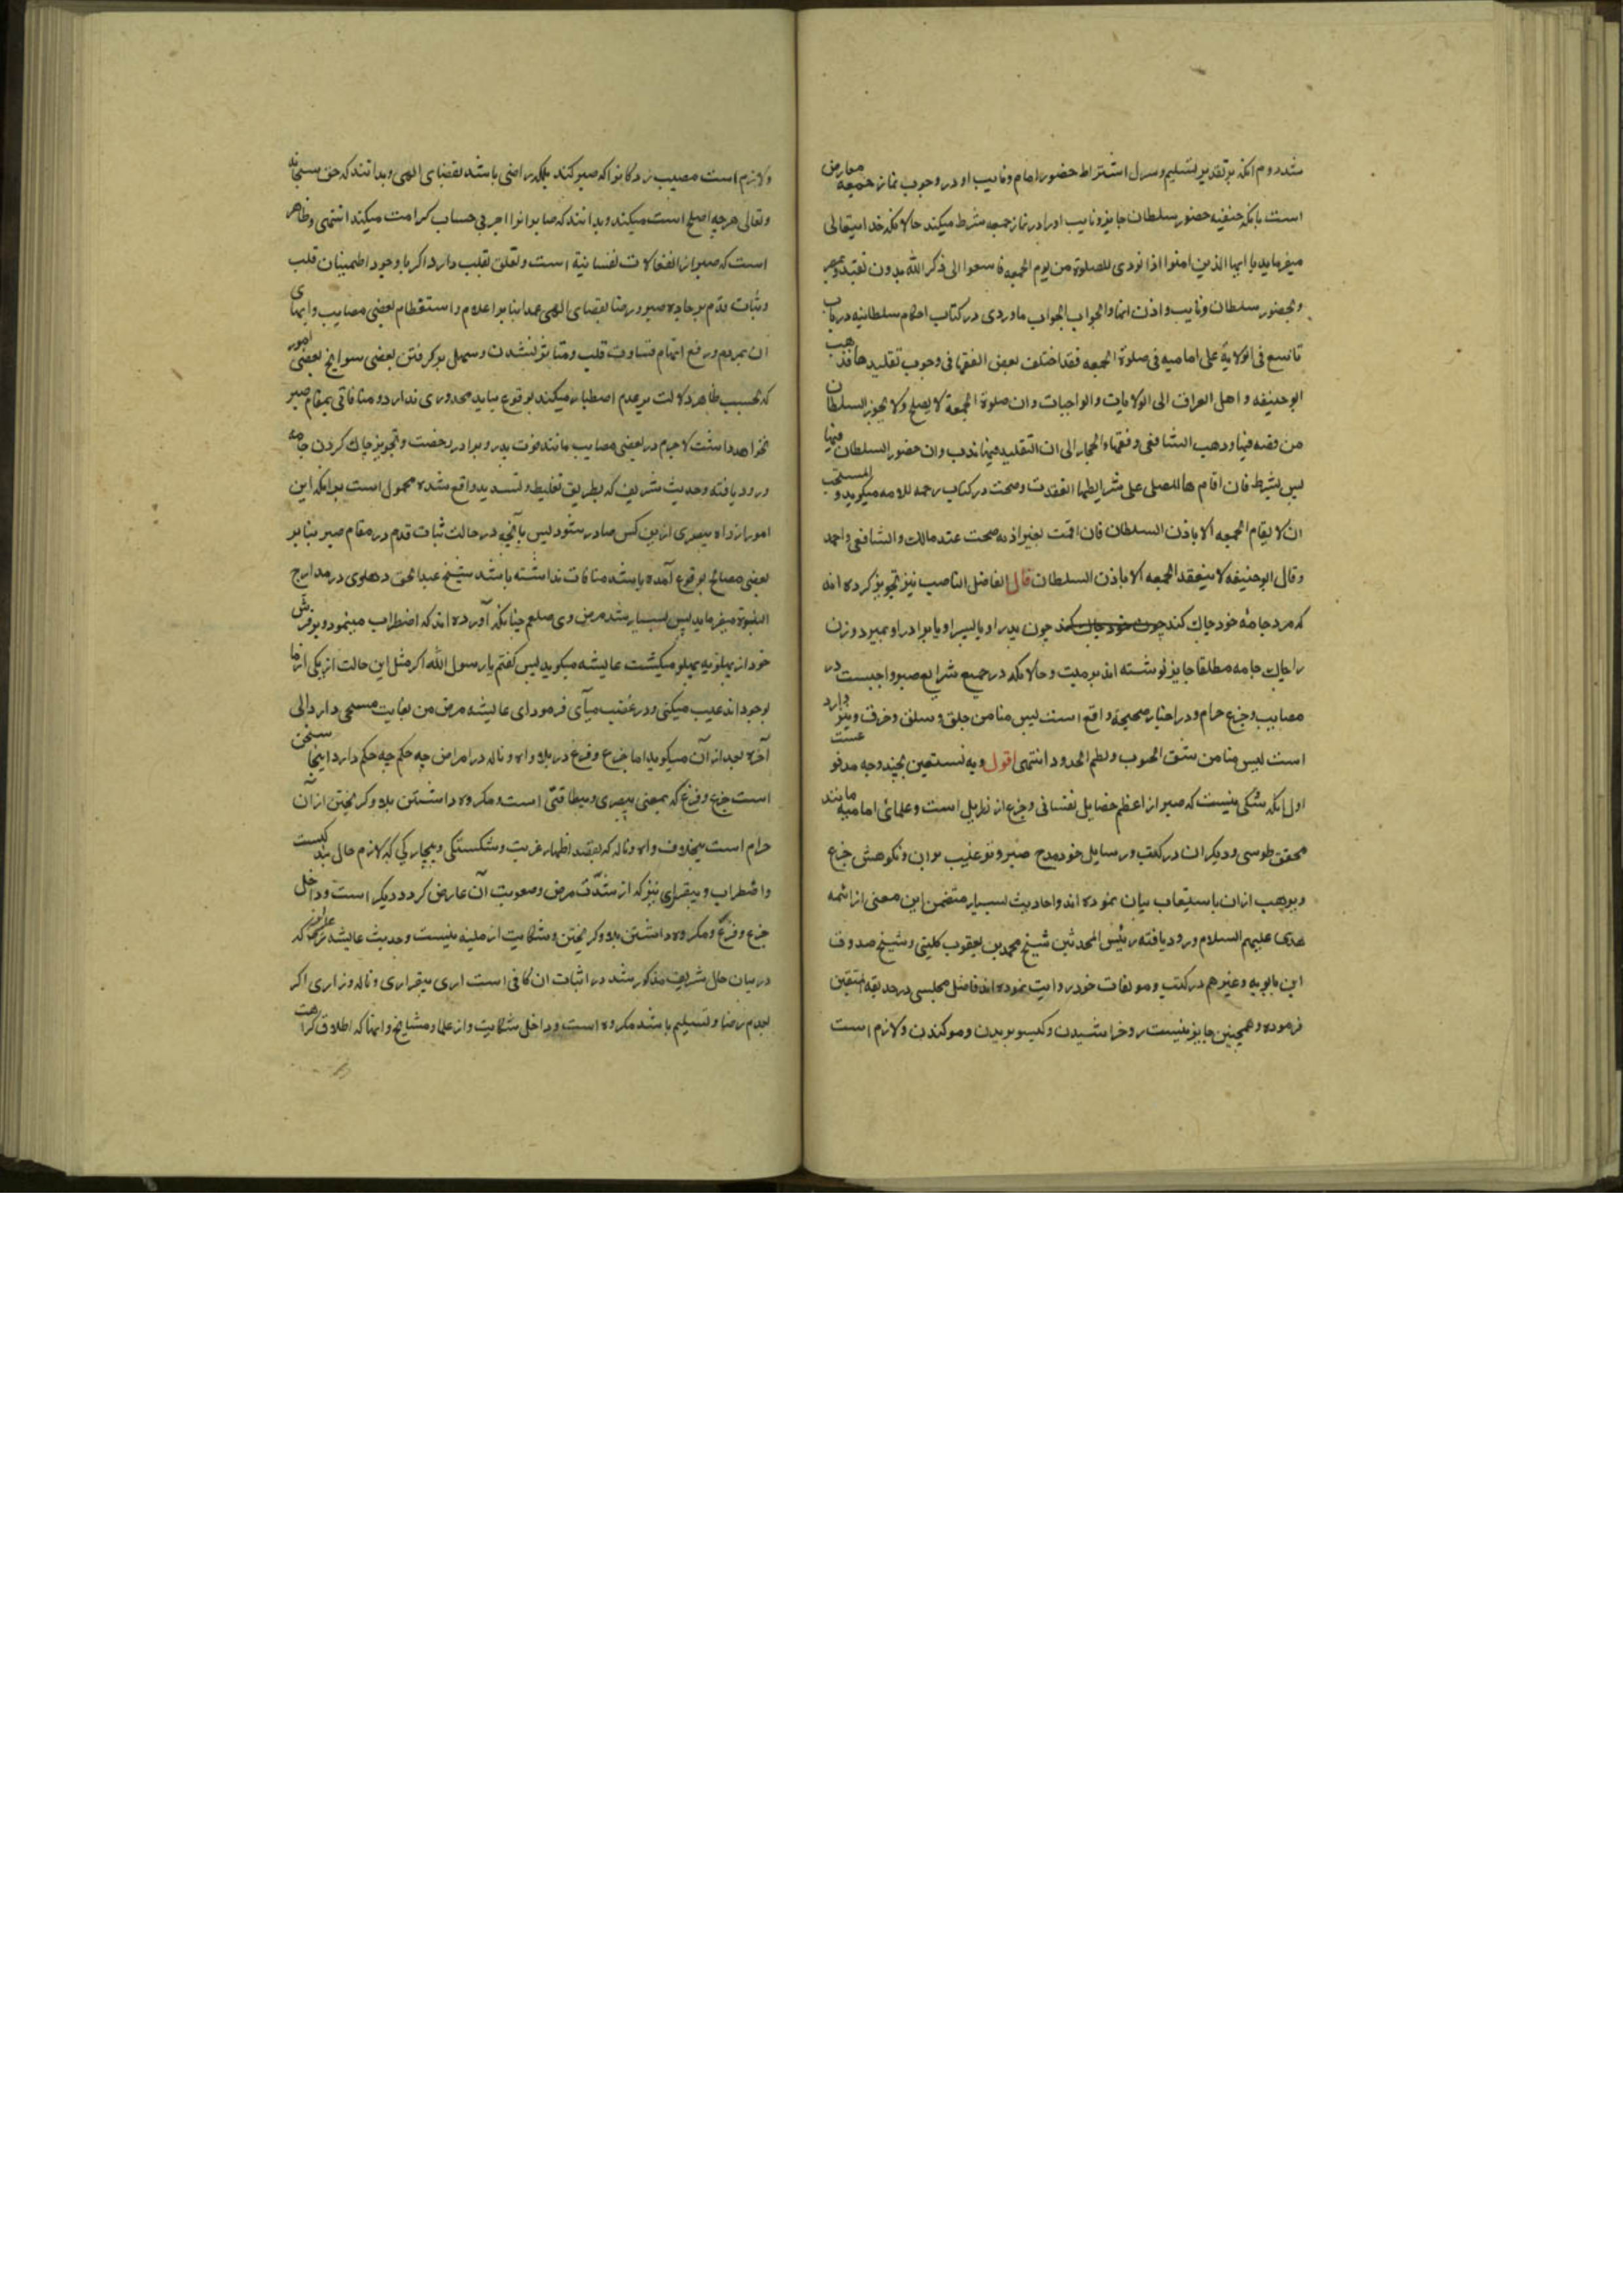 شد دوم آنکه بر تقدیر تسلیم و سؤال اشتراط حضور امام و نایب او در وجوب نماز جمعه معارض
است بآنکه حنفیه حضور سلطان جایر و نایب او را در نماز جمعه شرط میکنند حالانکه خدایتعالی
میفرماید یا ایها الذین امنوا اذا نودی للصلوة من یوم الجمعه فاسعوا الی ذکر الله بدون تقیید
و بحضور سلطان و نایب و اذن انها و الجواب الجواب ماوردی در کتاب احکام سلطانیه در باب
تاسع فی الولایة علی امامیه فی صلوة الجمعه فقد اختلف بعض الفقها فی وجوب تقلیدها فذهب
ابوحنیفه و اهل العراق الی الولایات و الواجبات و ان صلوة الجمعة لا یصلح و لا یجوز السلطان
من فیها و ذهب الشافعی و فقهاء الحجاز الی ان التقلید فیها ندب و ان حضور السلطان فیها
لیس بشرط فان اقامها المصلی علی شرایطها انعقدت و صحت در کتاب رحمه للامه میگوید و المستحب
ان لا یقام الجمعه الا باذن السلطان فان اقمت بغیر اذنه صحت عند مالک و الشافعی و احمد
و قال ابوحنیفه لا ینعقد الجمعه الا باذن السلطان قال الفاضل الناصب نیز تجویز کرده اند
که مرد جامه خود چاک کند چون پدر او یا پسر او یا برادر او بمیرد و زن
را چاک جامه مطلقا جایز نوشته اند بر میت و حالانکه در جمیع شرایع صبر واجبست در
مصایب و جزع حرام و در اخبار صحیحه واقع است لیس منا من حلق و سلق و خرق و نیز وارد
است لیس منا من شق الجیوب و لطم الخدود انتهی اقول و به نستعین بچند وجه مدفوعست
اول آنکه شکی نیست که صبر از اعظم خصایل نفسانی و جزع از رذایل است و علمای امامیه مانند
محقق طوسی و دیگران در کتب و رسایل خود مدح صبر و ترغیب بر آن و نکوهش جزع
و ترهیب از آن باستیعاب بیان نموده اند و احادیث بسیار متضمن این معنی از ائمه
هدی علیهم السلام ورود یافته رئیس المحدثین شیخ محمد بن یعقوب کلینی و شیخ صدوق
ابن بابویه و غیرهم در کتب و مولفات خود روایت نموده اند فاضل مجلسی در حدیقة المتقین
فرموده و همچنین جایز نیست رو خراشیدن و گیسو بریدن و مو کندن و لازم است
و لازم است مصیبت زدگان را که صبر کنند بلکه راضی باشند بقضای الهی و بدانند که حق سبحانه
و تعالی هر چه اصلح است میکند و بدانند که صابران را اجر بی حساب کرامت میکند انتهی و ظاهر
است که صبر از انفعالات نفسانیة است و تعلق بقلب دارد اگر با وجود اطمینان قلب
و ثبات قدم بر جاده صبر و رضا بقضای الهی عمدا بنا بر اعلام و استعظام بعضی مصایب و ایمای
آن بمردم و رفع اتهام قساوت قلب و متاثر نشدن و سهل بر گرفتن بعضی سوانح بعضی امور
که بحسب ظاهر دلالت بر عدم اصطبار میکند بوقوع بیاید محذوری ندارد و منافاتی بمقام صبر
نخواهد داشت لاجرم در بعضی مصایب مانند فوت پدر و برادر رخصت و تجویز چاک کردن جامه
ورود یافته و حدیث شریف که بطریق تغلیظ و تشدید واقع شده محمول است بر آنکه این
امور از راه بیصبری ازین کس صادر شود پس بآنچه در حالت ثبات قدم در مقام صبر بنا بر
بعضی مصالح بوقوع آمده باشد منافات نداشته باشد شیخ عبدالحق دهلوی در مدارج
النبوة میفرماید پس بسیار شد مرض وی صلعم چنانکه آورده اند که اضطراب مینمود و بر فرش
خود از پهلو به پهلو میگشت عایشه میگوید پس گفتم یا رسول الله اگر مثل این حالت از یکی از ما
بوجود آید عیب میکنی و در غضب میآی فرمود ای عایشه مرض من بغایت سختی دارد الی
آخره بعد از آن میگوید اما جزع و فزع در بلا و آه و ناله در امراض چه حکم دارد اینجا سخن
است جزع و فزع که بمعنی بیصبری و بیطاقتی است و مکروه داشتن بلا و گریختن از آن
حرام است بخلاف آه و ناله که بقصد اظهار غربت و شکستگی و بیچارگی که لازم حال بندگیست
و اضطراب و بیقراری نیز که از شدت مرض و صعوبت آن عارض گردد دیگر است و داخل
جزع و فزع و مکروه داشتن بلا و گریختن و شکایت از مبلیه نیست و حدیث عایشه که
در بیان حال شریف مذکور شد در اثبات آن کافی است آری بیقراری و ناله و زاری اگر
بعدم رضا و تسلیم باشد مکروه است و داخل شکایت و از علما و مشایخ و آنها که اطلاق کراهت